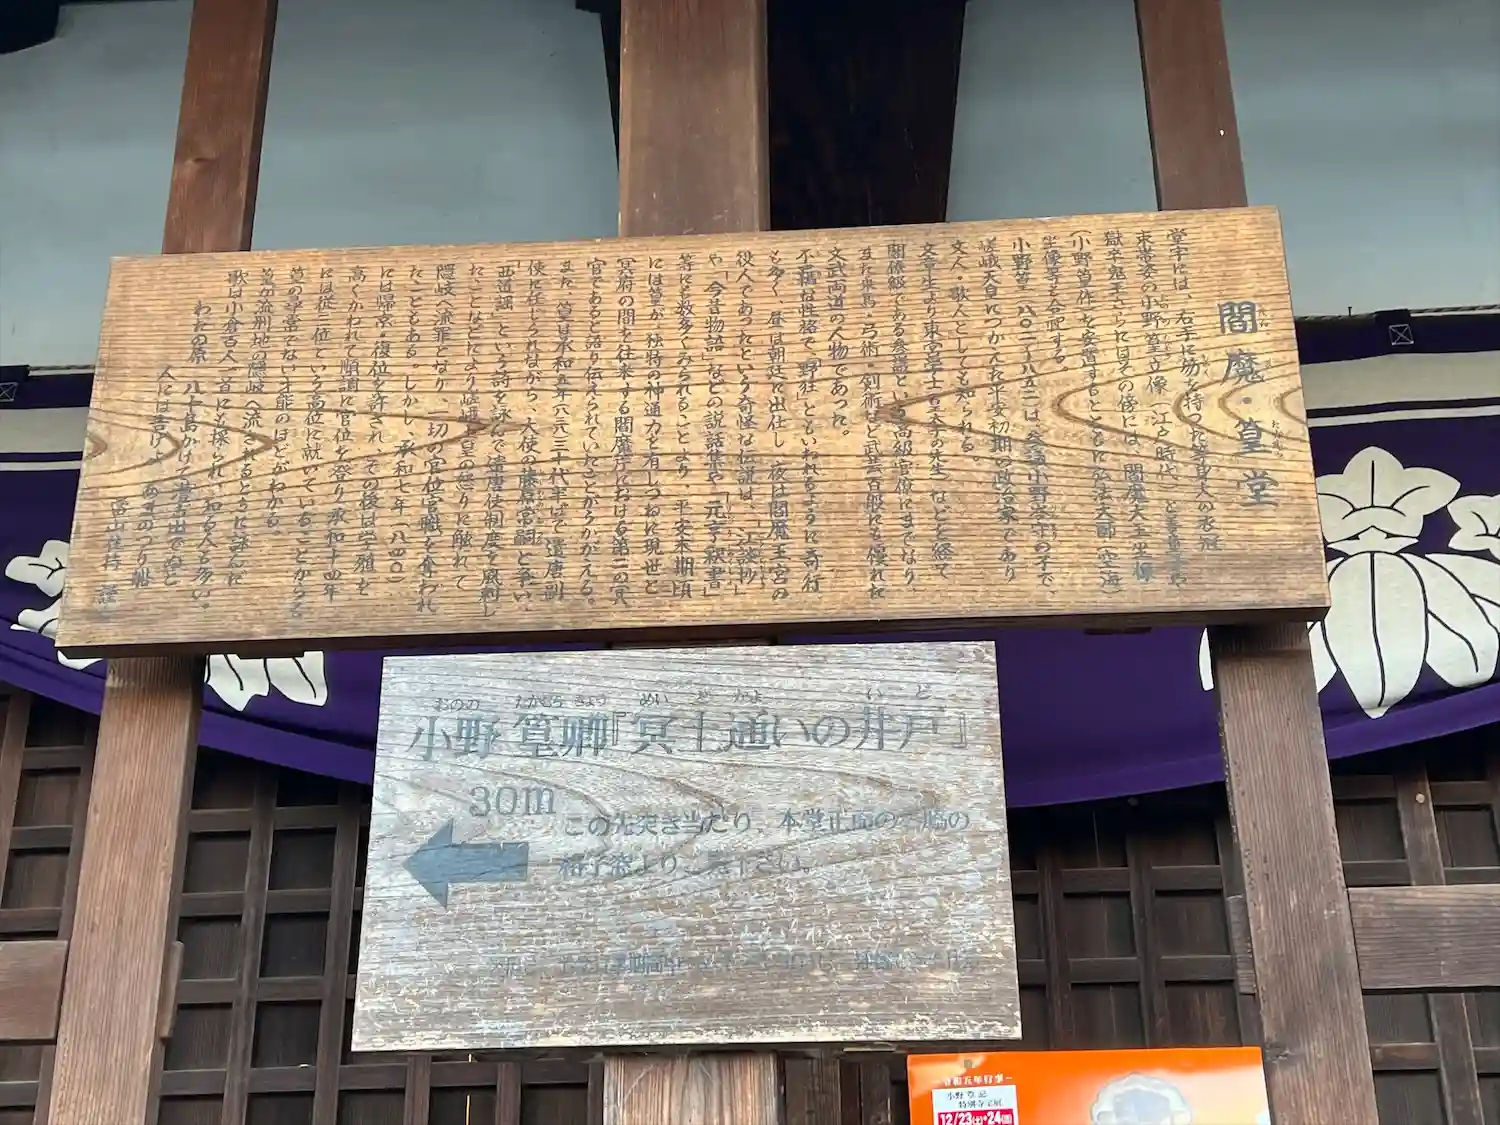 閻魔・篁堂
堂宇には、右手に笏を持った等身大の衣冠
束帯姿の小野篁立像(江戸時代)と善童子
獄卒鬼王さらにはその傍には、閻魔大王坐像
(小野篁作)を安置するとともに弘法大師(空海)
坐像等を合祀する。
小野篁(八〇二~八五二)は、参議小野岑守の子で、
嵯峨天皇につかえた平安初期の政治家であり
文人・歌人としても知られる。
文章生より東宮学士(皇太子の先生)などを経て
閣僚級である参議という高級官僚にまでなり、
また乗馬・弓術・剣術など武芸百般にも優れた
文武両道の人物であった。
不羈な性格で、「野狂」ともいわれるように奇行
も多く、昼は朝廷に出仕し、夜は閻魔王宮の
役人であったという奇怪な伝説は、「江談抄」
や「今昔物語」などの説話集や「元亨釈書」
等にも数多くみられることより、平安末期頃
には篁が、独特の神通力を有しつねに現世と
冥府の間を往来する閻魔庁における第二の冥
官であると語り伝えられていたことがうかがえる。
また、篁は承和五年(八三八)三十代半ばで、遣唐副
使に任じられながら、大使の藤原常嗣と争い、
「西道謡」という詩を詠んで遣唐使制度を風刺し
たことなどにより嵯峨上皇の怒りに触れて
隠岐へ流罪となり、一切の官位官職を奪われ
たこともある。しかし、承和七年(八四〇)
には帰京、復位を許され、その後は学雅を
高くかわれ、順調に官位を登り承和十四年
には従三位という高位に就いていることからも
篁の尋常でない才能のほどがわかる。
篁が流刑地の隠岐へ流されるときに詠んだ
歌は小倉百人一首にも採られ、知る人も多い。
わたの原 八十島かけて漕ぎ出でぬと
人には告げよ あまのつり舟
当山住持
おのの たかむら きょう めい ど かよ い ど
小野篁卿『冥土通いの井戸』
30m
この先突き当たり、本堂正面の右脇の
格子窓よりご覧下さい。
令和五年行事
12/23(土)・24(日)